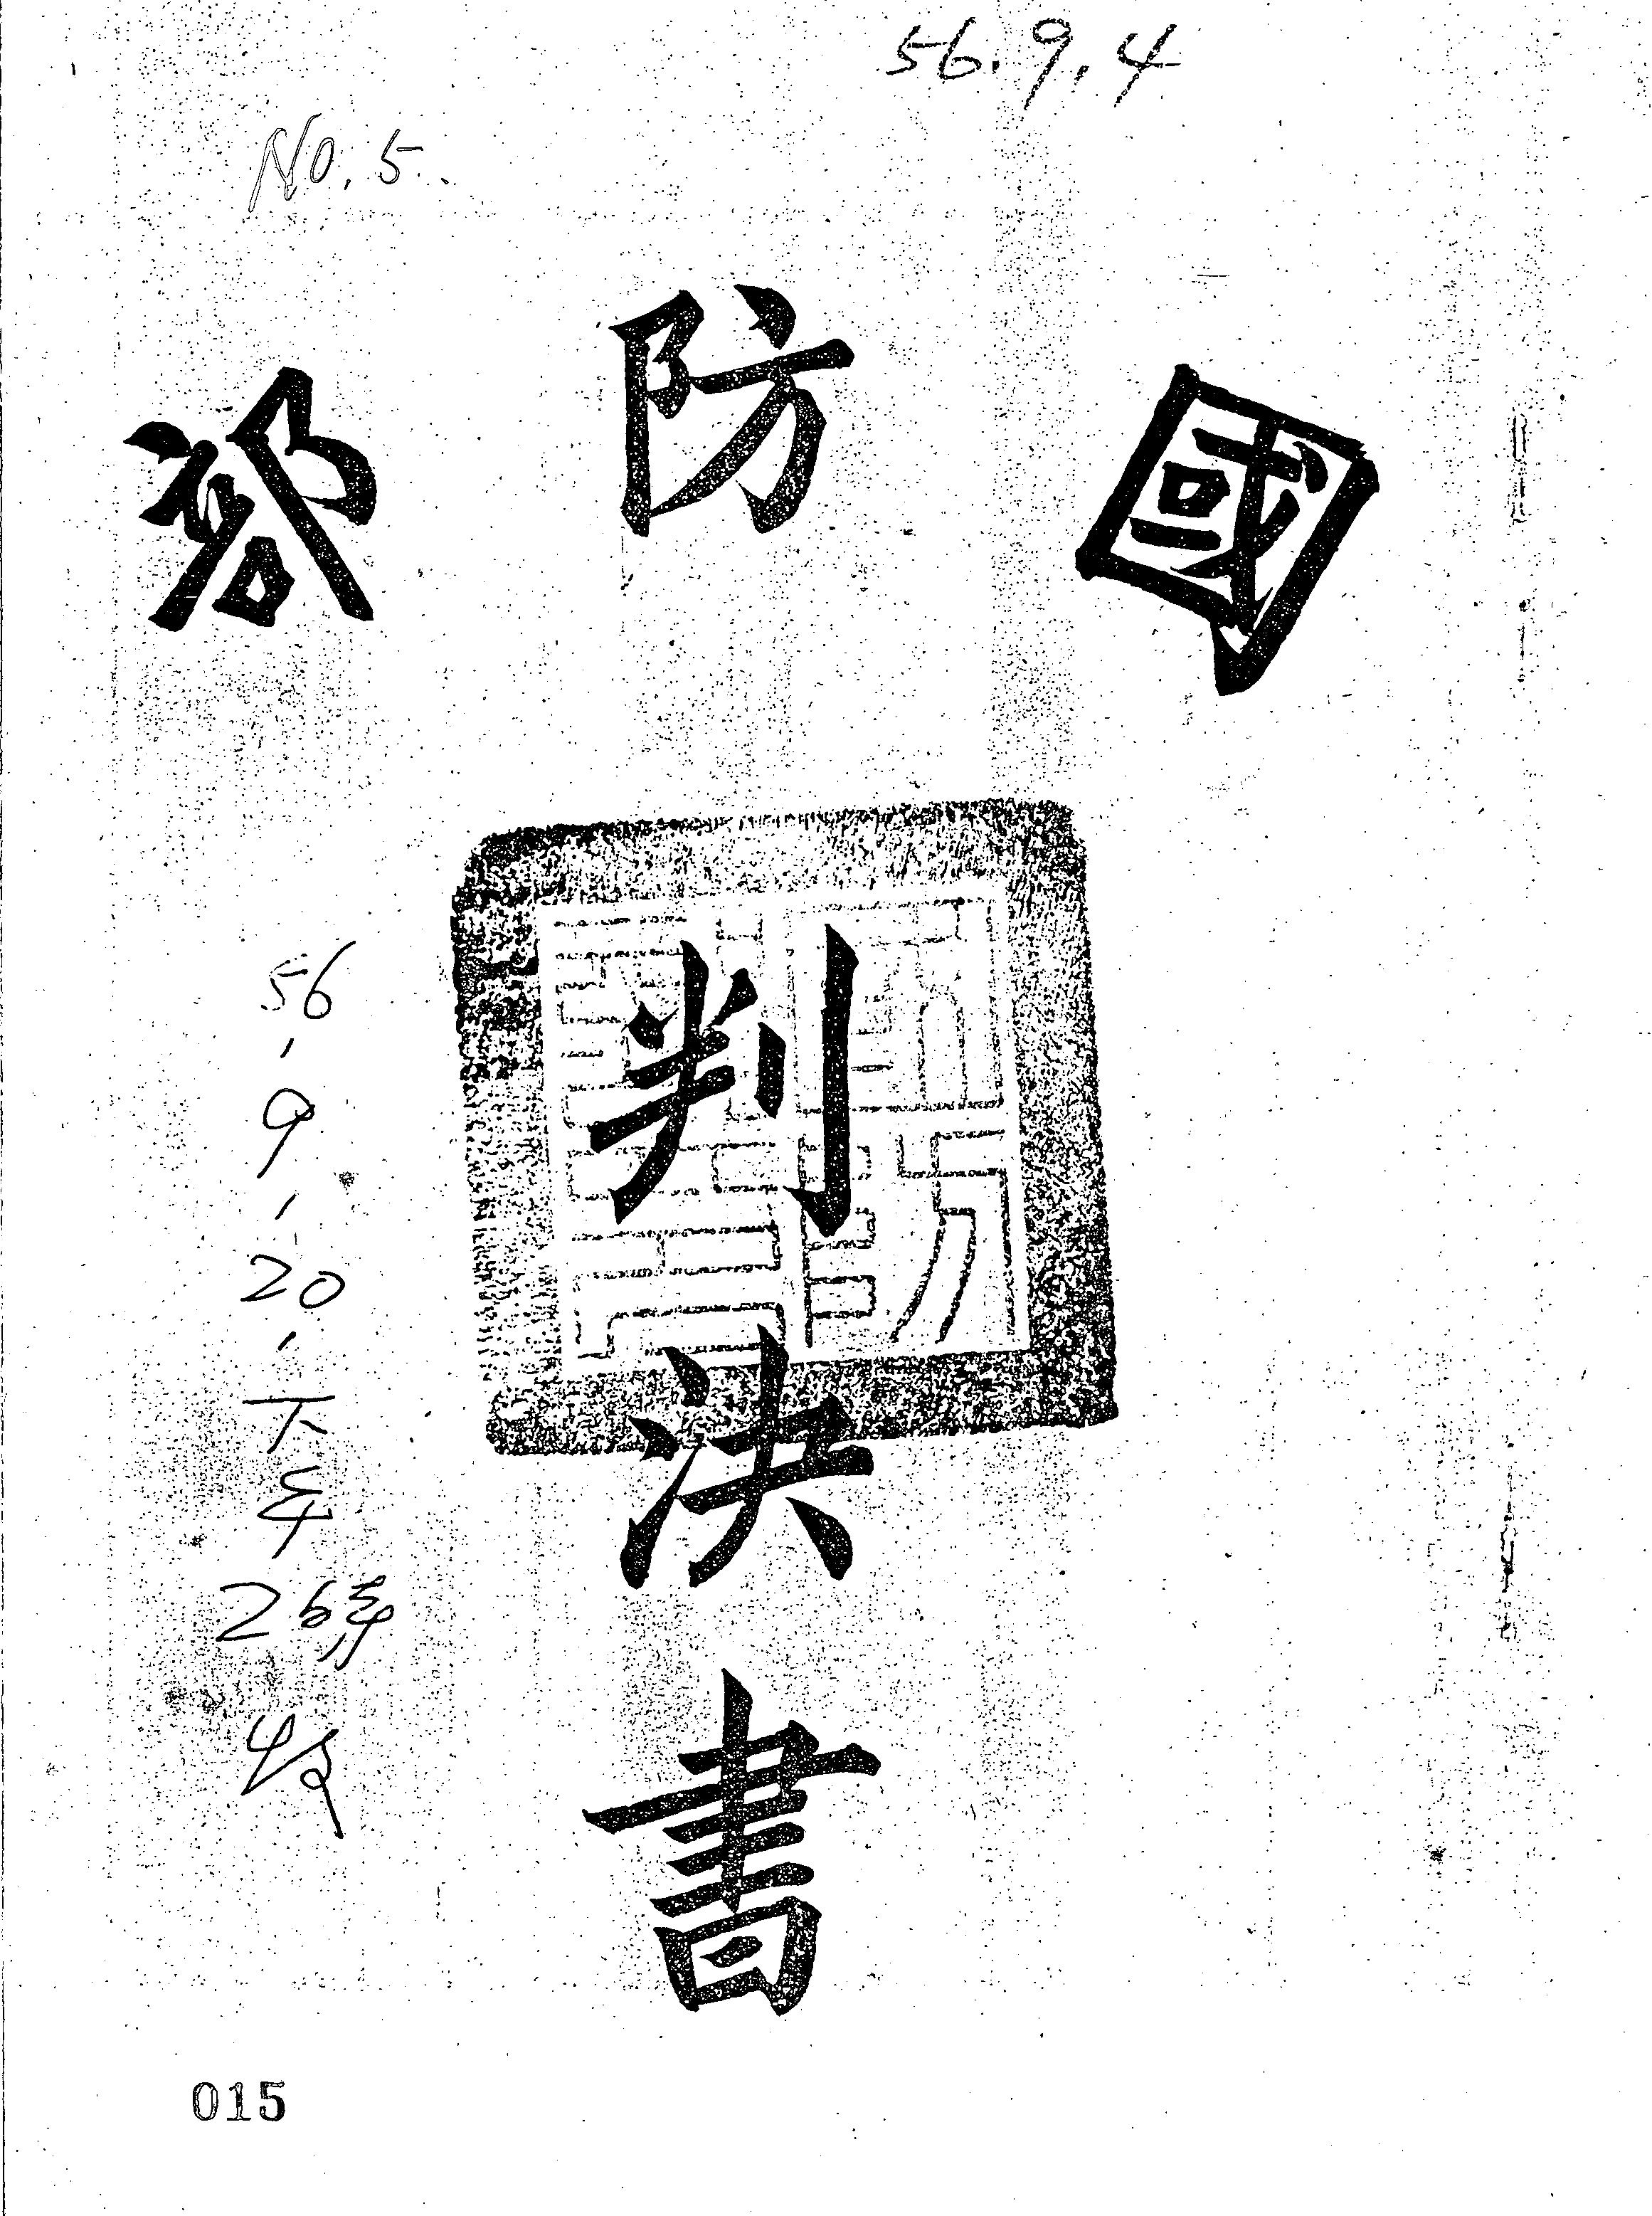 56.9.4
No.5
國防部
判決書
56.9.20.下午2時收
015